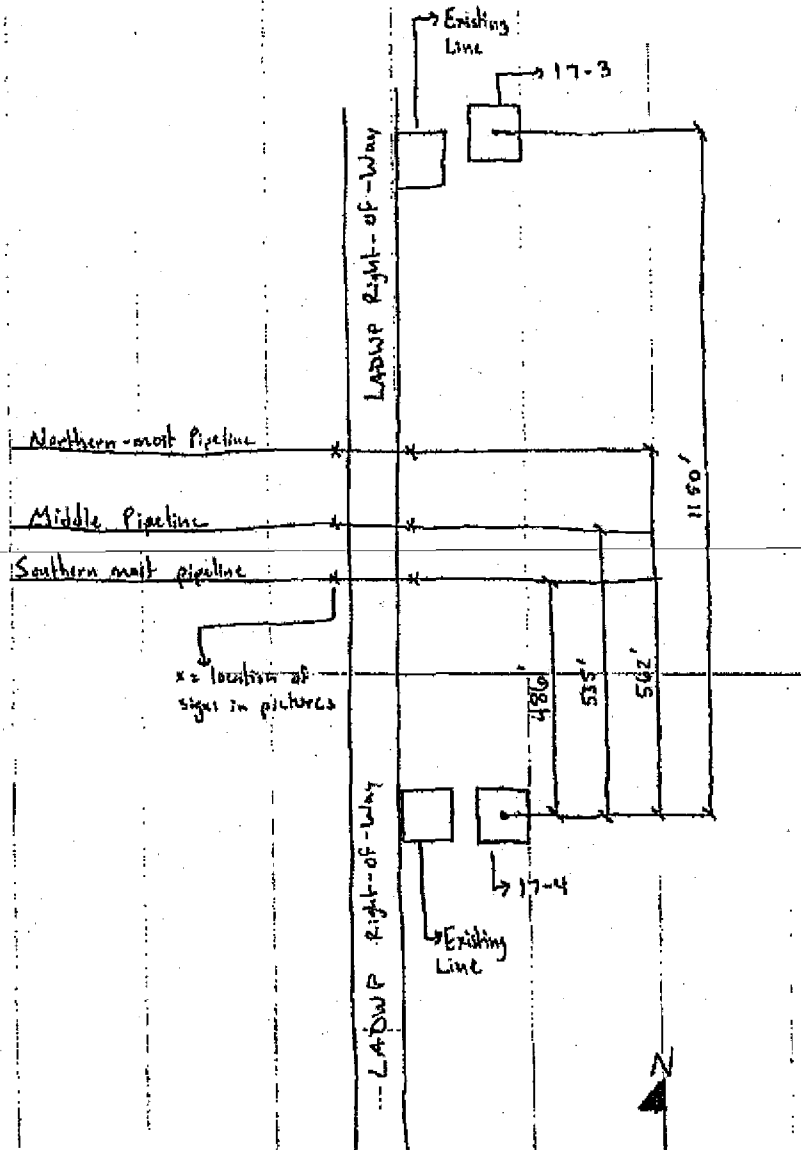 Existing
Line
17-3
LADWP Right-of-Way
Northern-most Pipeline
Middle Pipeline
Southern most pipeline
1150'
x = location of
signs in pictures
486'
535'
562'
LADWP Right-of-Way
17-4
Existing
Line
N